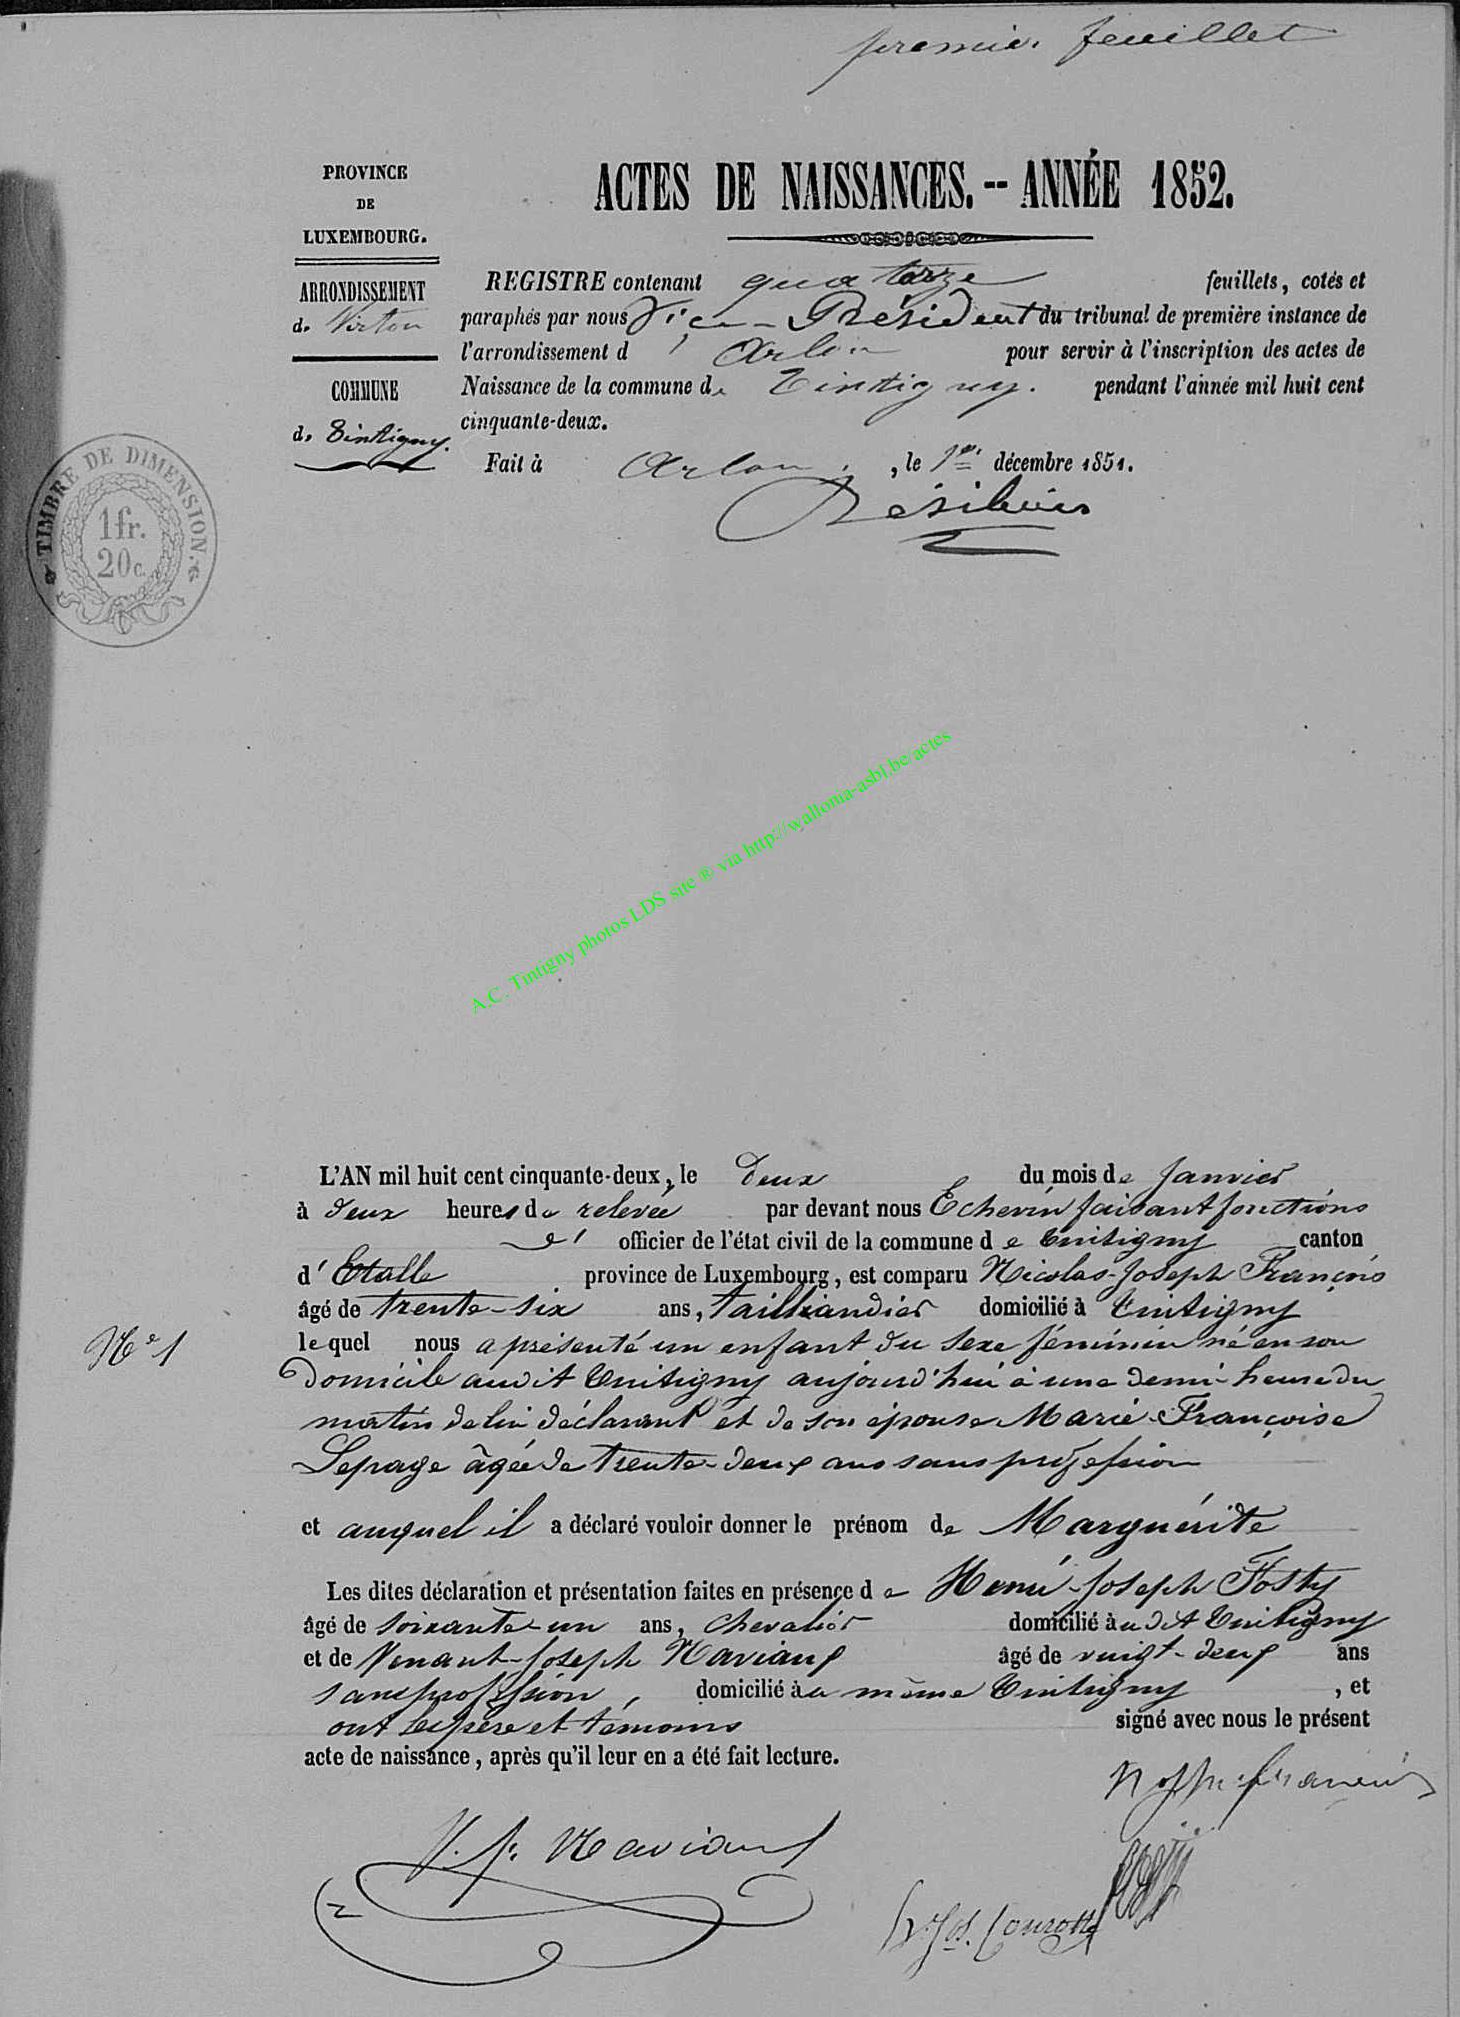 premier feuillet
PROVINCE
DE
LUXEMBOURG.
ARRONDISSEMENT
de Virton
COMMUNE
de Tintigny.
TIMBRE DE DIMENSION.
1 fr.
20 c.
ACTES DE NAISSANCES. -- ANNÉE 1852.
REGISTRE contenant quatorze feuillets, cotés et
paraphés par nous Vice-Président du tribunal de première instance de
l'arrondissement d Arlon pour servir à l'inscription des actes de
Naissance de la commune de Tintigny. pendant l'année mil huit cent
cinquante-deux.
Fait à Arlon, le 1er décembre 1851.
A.C. Tintigny photos LDS site ® via http://wallonia-asbl.be/actes
L'AN mil huit cent cinquante-deux, le deux du mois de Janvier
à deux heures de relevée par devant nous Echevin faisant fonctions
d' officier de l'état civil de la commune de Tintigny canton
d'Etalle province de Luxembourg, est comparu Nicolas-Joseph François
âgé de trente-six ans, taillandier domicilié à Tintigny
lequel nous a présenté un enfant du sexe féminin né en son
N° 1
domicile audit Tintigny aujourd'hui à une demi-heure du
matin de lui déclarant et de son épouse Marie-Françoise
Lepage âgée de trente-deux ans sans profession
et auquel il a déclaré vouloir donner le prénom de Marguérite
Les dites déclaration et présentation faites en présence de Henri-Joseph Fosty
âgé de soixante-un ans, chevalier domicilié audit Tintigny
et de Venant-Joseph Naviaux âgé de vingt-deux ans
sans profession, domicilié au même Tintigny, et
ont les père et témoins signé avec nous le présent
acte de naissance, après qu'il leur en a été fait lecture.
V. J. Naviaux